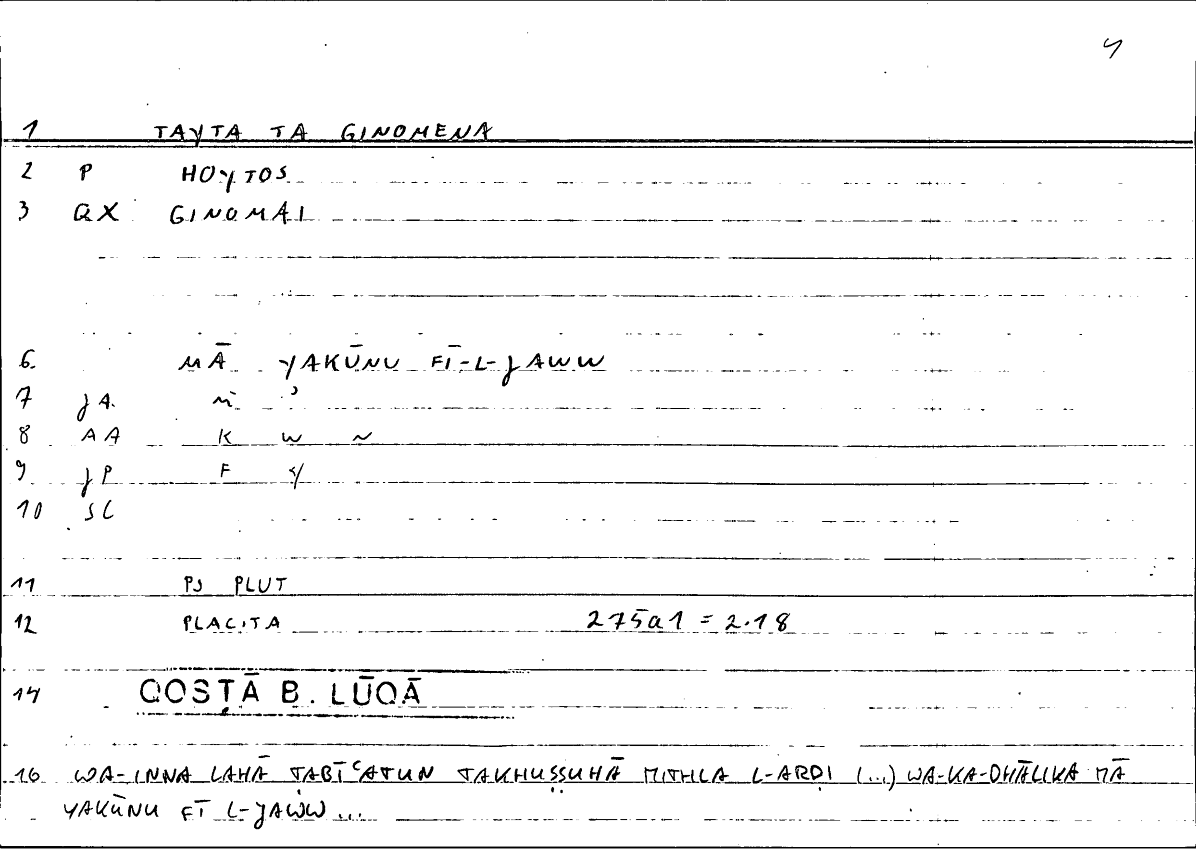 4
1 TAYTA TA GINOMENA
2 P HOYTOS
3 QX GINOMAI
6. MĀ YAKŪNU FĪ-L-JAWW
7 JA. M ʾ
8 AA K W N
9 JP F Y
10 SC
11 PS PLUT
12 PLACITA 275a1 = 2.18
14 QOSṬĀ B. LŪQĀ
16 WA-INNA LAHĀ ṬABĪʿATUN TAKHUṢṢUHĀ MITHLA L-ARḌI (...) WA-KA-DHĀLIKA MĀ
YAKŪNU FĪ L-JAWW...